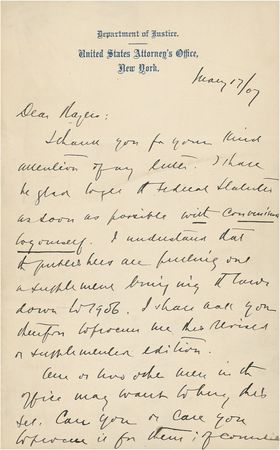 Department of Justice.
United States Attorney's Office,
New York.
May 17/07
Dear Rogers:
I thank you for your kind
attention of my letter. I shall
be glad to get the Federal Statutes
as soon as possible with convenience
to yourself. I understand that
the publishers are
a supplement bringing it
down to 1906. I shall ask you
therefore to procure me this revised
or supplemented edition.
One or two other men in the
office may want to buy this
set. Can you or care you
to procure it for them if